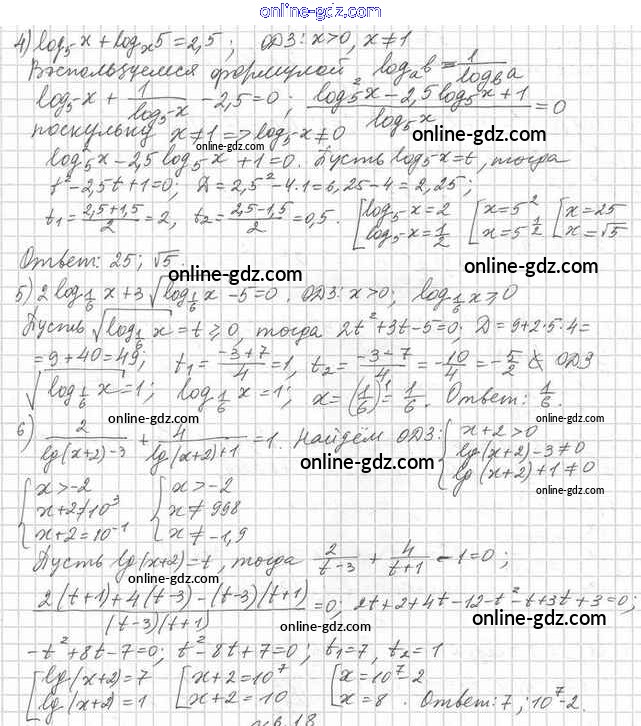 online-gdz.com
4) log₅x + logₓ5 = 2,5; ОДЗ: x>0, x≠1
Воспользуемся формулой logₐb = 1/log_b a
log₅x + 1/log₅x - 2,5 = 0; (log₅²x - 2,5log₅x + 1)/log₅x = 0
поскольку x≠1 => log₅x ≠ 0 online-gdz.com
log₅²x - 2,5 log₅x + 1 = 0. Пусть log₅x = t, тогда
t² - 2,5t + 1 = 0; Д = 2,5² - 4·1 = 6,25 - 4 = 2,25;
t₁ = (2,5+1,5)/2 = 2, t₂ = (2,5-1,5)/2 = 0,5. [log₅x = 2 [x = 5² [x = 25
log₅x = 1/2 x = 5^(1/2) x = √5
Ответ: 25; √5. online-gdz.com online-gdz.com
5) 2 log_(1/6) x + 3√(log_(1/6) x) - 5 = 0. ОДЗ: x>0; log_(1/6) x ≥ 0
Пусть √(log_(1/6) x) = t ≥ 0, тогда 2t² + 3t - 5 = 0; Д = 9 + 2·5·4 =
= 9 + 40 = 49; t₁ = (-3+7)/4 = 1, t₂ = (-3-7)/4 = -10/4 = -5/2 ∉ ОДЗ
√(log_(1/6) x) = 1; log_(1/6) x = 1; x = (1/6)¹ = 1/6. Ответ: 1/6.
online-gdz.com online-gdz.com
6) 2/(lg(x+2)-3) + 4/(lg(x+2)+1) = 1. Найдём ОДЗ: { x+2>0
online-gdz.com lg(x+2)-3≠0
lg(x+2)+1≠0
{ x>-2 { x>-2
x+2≠10³ x≠998
x+2=10⁻¹ x≠-1,9
online-gdz.com
Пусть lg(x+2) = t, тогда 2/(t-3) + 4/(t+1) - 1 = 0;
online-gdz.com
(2(t+1)+4(t-3)-(t-3)(t+1))/((t-3)(t+1)) = 0; 2t+2+4t-12-t²-t+3t+3=0;
online-gdz.com
-t²+8t-7=0; t²-8t+7=0; t₁=7, t₂=1
online-gdz.com
[lg(x+2)=7 [x+2=10⁷ [x=10⁷-2
lg(x+2)=1 x+2=10 x=8. Ответ: 7; 10⁷-2.